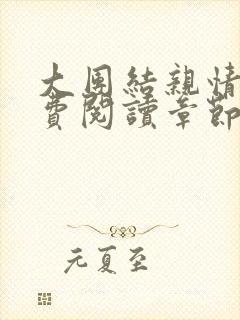 大团結親情
費閱讀章節
元夏至